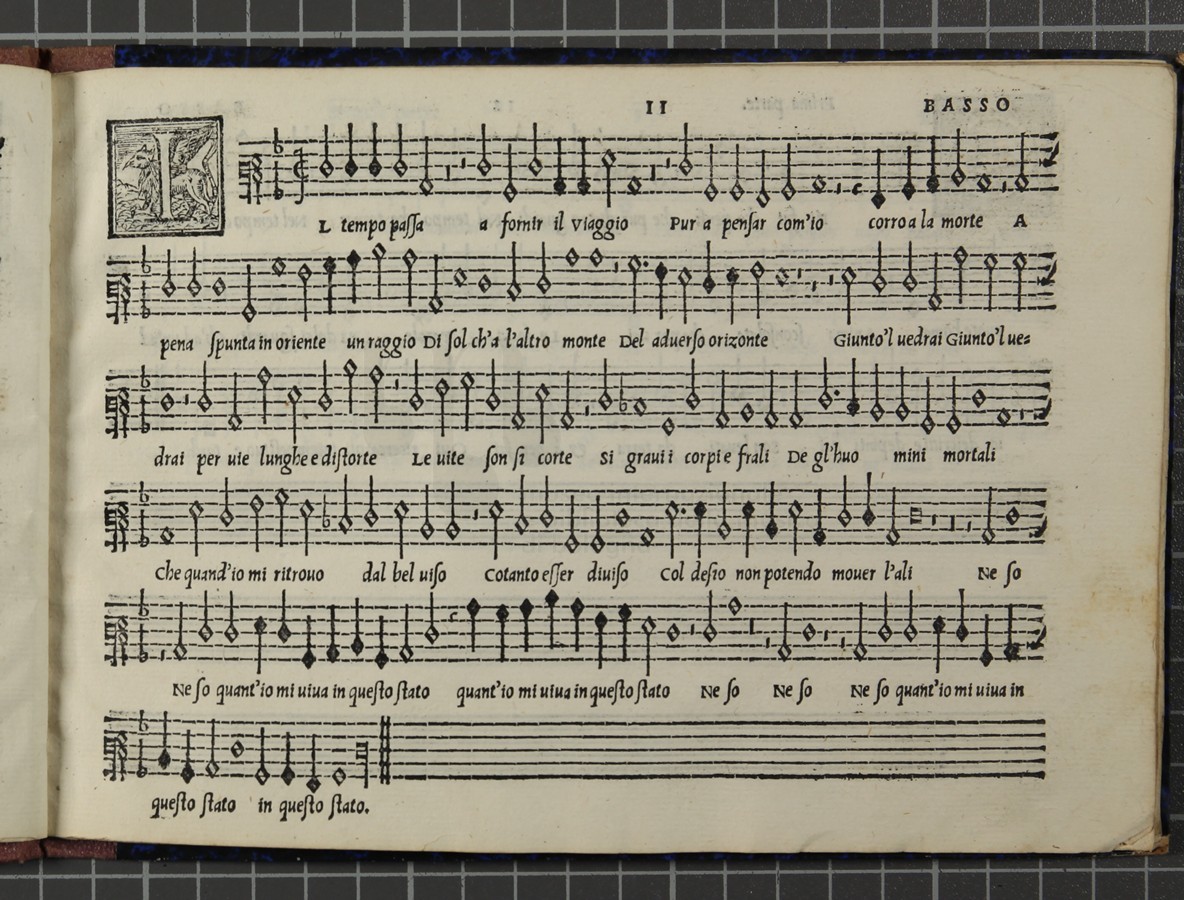 II BASSO
IL tempo paſſa a fornir il viaggio Pur a penſar com'io corro a la morte A
pena ſpunta in oriente un raggio Di ſol ch'a l'altro monte Del aduerſo orizonte Giunto'l uedrai Giunto'l ue=
drai per uie lunghe e diſtorte Le uite ſon ſi corte Si graui i corpi e frali De gl'huo mini mortali
Che quand'io mi ritrouo dal bel uiſo Cotanto eſſer diuiſo Col deſio non potendo mouer l'ali Ne ſo
Ne ſo quant'io mi uiua in queſto ſtato quant'io mi uiua in queſto ſtato Ne ſo Ne ſo Ne ſo quant'io mi uiua in
queſto ſtato in queſto ſtato.